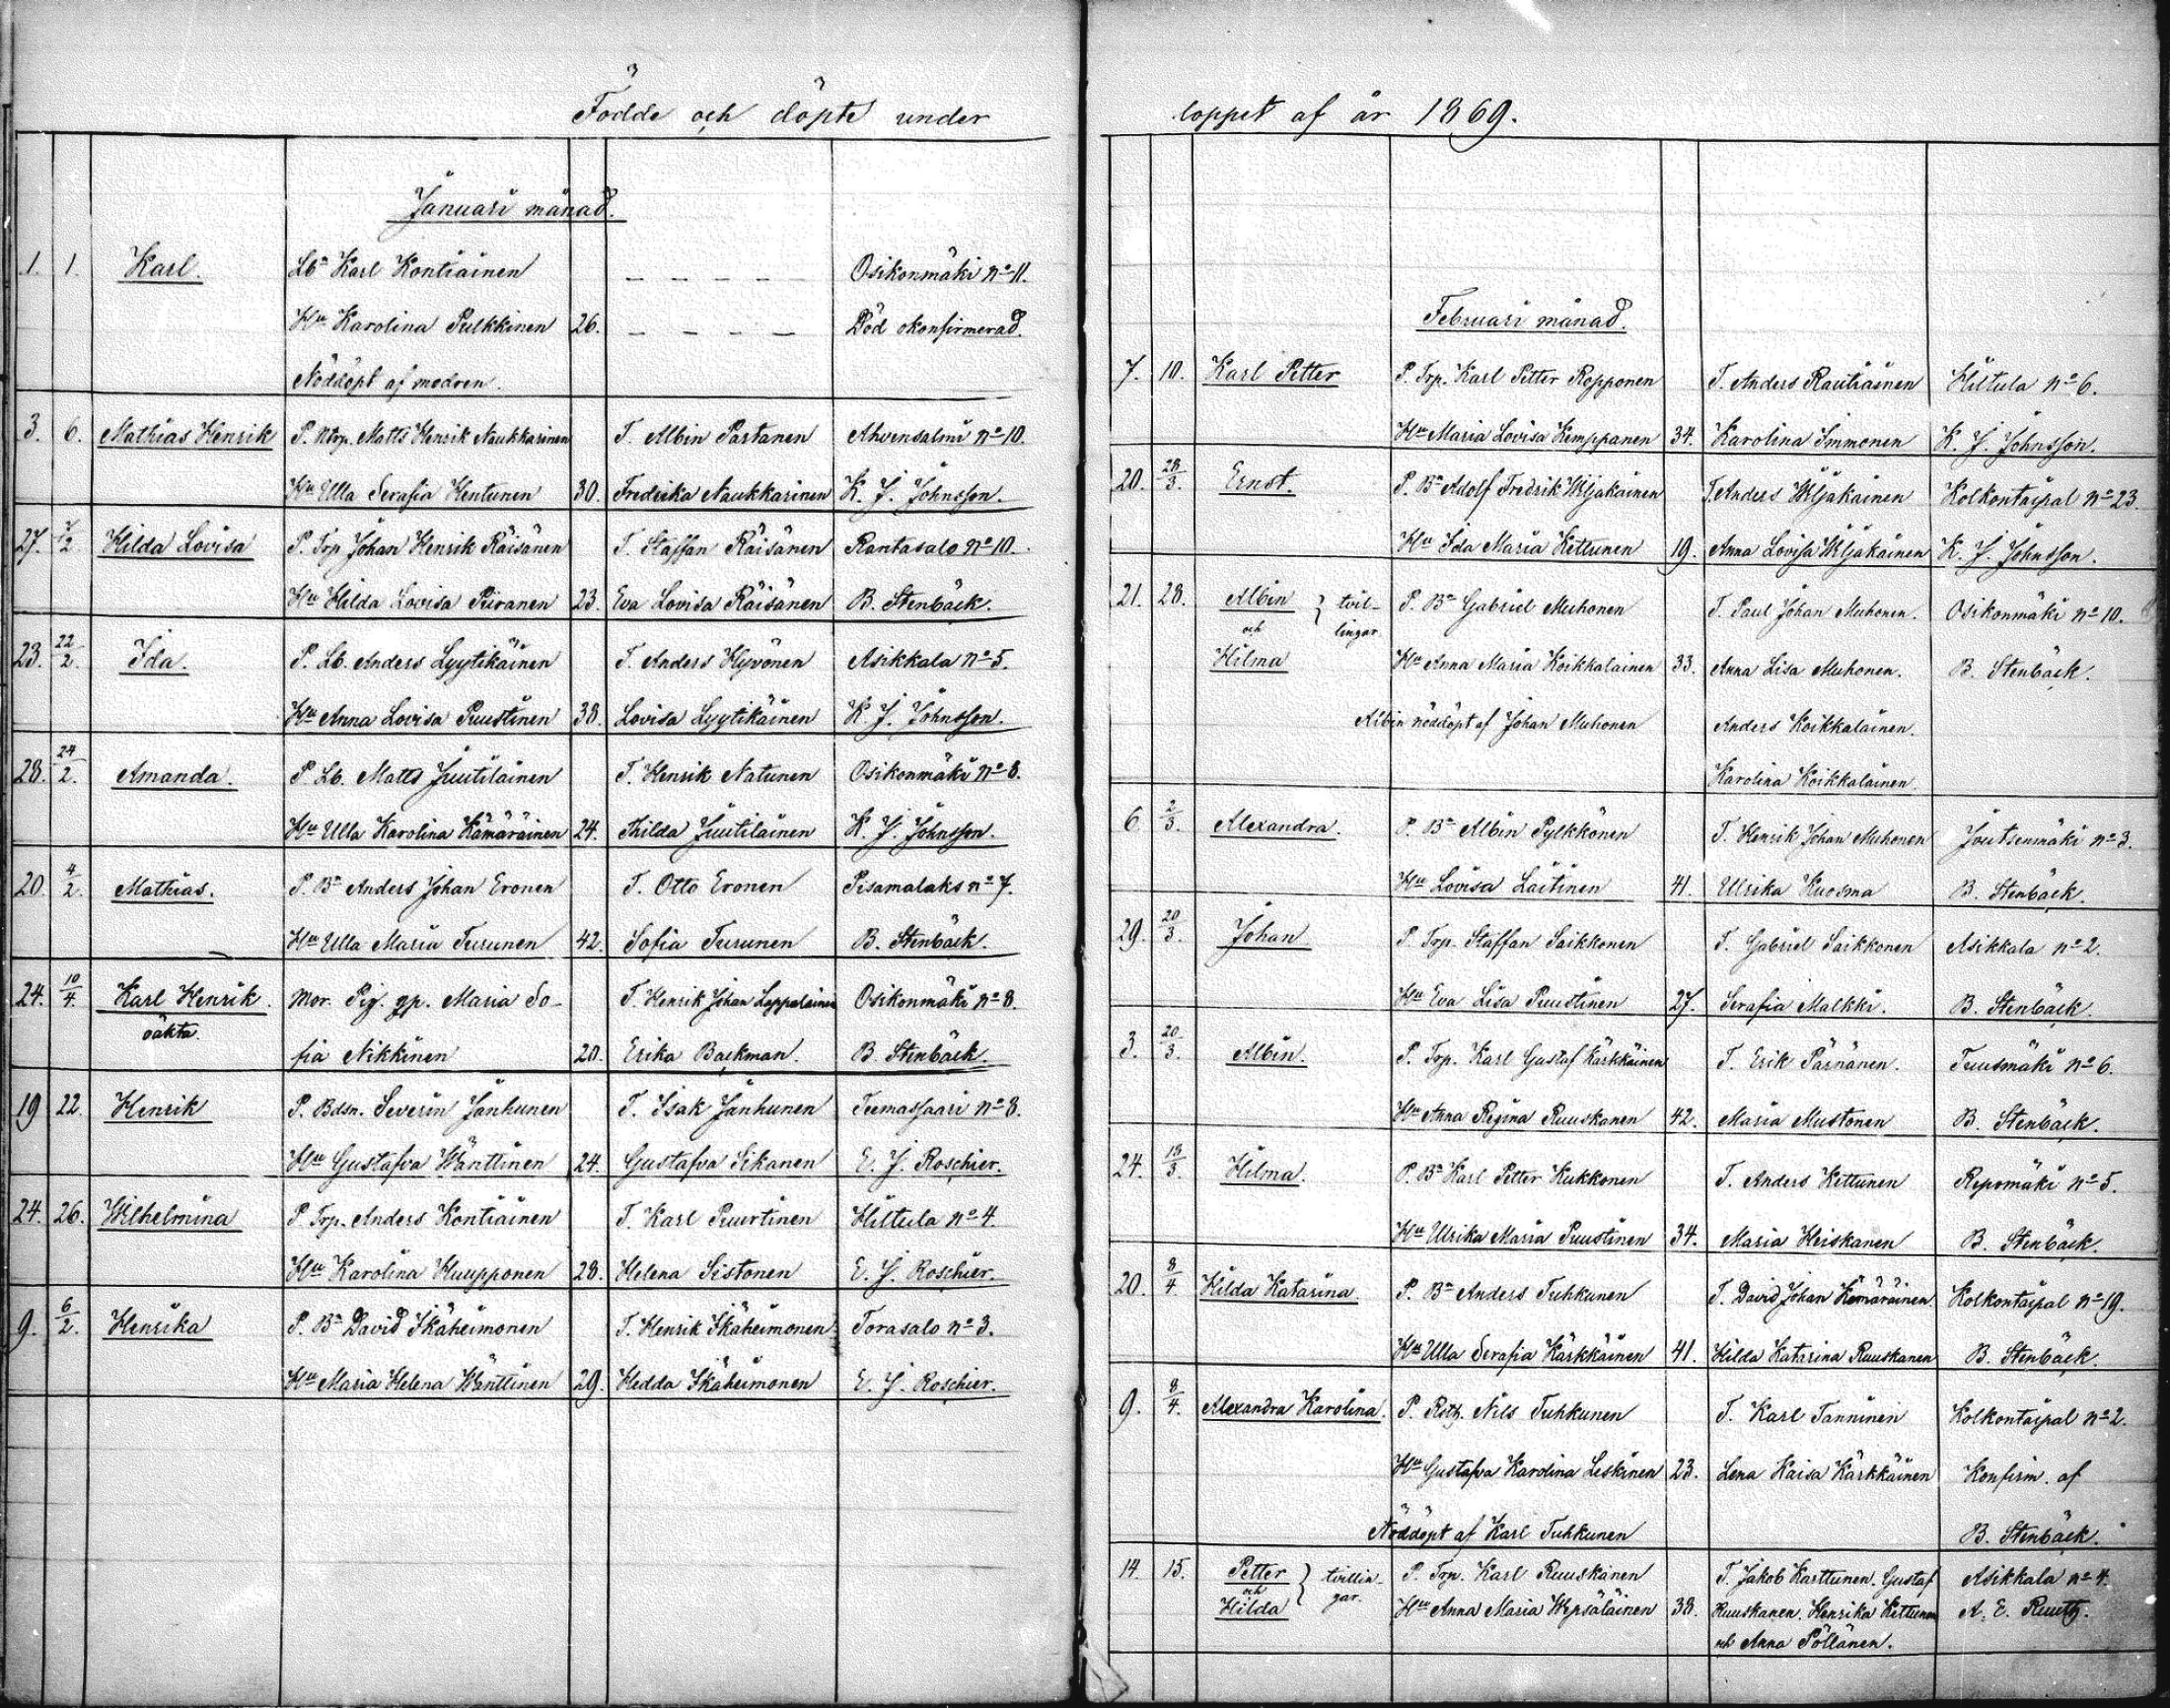 Födde och döpte under
Januari månad.
1. 1. Karl. Lb:n Karl Kontiainen – – – – – Osikonmäki n:o 11.
H:u Karolina Pulkkinen 26. – – – – Död okonfirmerad.
Nöddöpt af modren.
3. 6. Mathias Henrik P. Ntrp. Matts Henrik Naukkarinen T. Albin Partanen Ahvensalmi n:o 10.
H:u Ulla Serafia Hentunen 30. Fredrika Naukkarinen K. J. Johnsson.
27. 7/2 Hilda Lovisa P. Trp Johan Henrik Räisänen T. Staffan Räisänen Rantasalo n:o 10.
H:u Hilda Lovisa Piiranen 23. Eva Lovisa Räisänen B. Stenbäck.
23. 22/2. Ida. P. Lb. Anders Lyytikäinen T. Anders Hyvönen Asikkala n:o 5.
H:u Anna Lovisa Puustinen 38. Lovisa Lyytikäinen K. J. Johnsson.
28. 24/2. Amanda. P. Lb. Matts Juutilainen T. Henrik Natunen Osikonmäki n:o 8.
H:u Ulla Karolina Kämäräinen 24. Thilda Juutilainen K. J. Johnsson.
20. 4/2. Mathias. P. B:n Anders Johan Eronen T. Otto Eronen Pisamalaks n:o 7.
H:u Ulla Maria Turunen 42. Sofia Turunen B. Stenbäck.
24. 10/4. Karl Henrik. Mor. Pig. gp. Maria So- T. Henrik Johan Lappalainen Osikonmäki n:o 8.
oäkta. fia Nikkinen 20. Erika Backman. B. Stenbäck.
19 22. Henrik P. Bdsn. Severin Janhunen T. Isak Janhunen Teemassaari n:o 8.
H:u Gustafva Wänttinen 24. Gustafva Sikanen E. J. Roschier.
24. 26. Wilhelmina P. Trp. Anders Kontiainen T. Karl Puurtinen Hiltula n:o 4.
H:u Karolina Kuupponen 28. Helena Sistonen E. J. Roschier.
9. 6/2. Henrika P. B:n David Ikäheimonen T. Henrik Ikäheimonen Torasalo n:o 3.
H:u Maria Helena Wänttinen 29. Hedda Ikäheimonen E. J. Roschier.
loppet af år 1869.
Februari månad.
7. 10. Karl Petter P. Trp. Karl Petter Ropponen T. Anders Rautiainen Hiltula n:o 6.
H:u Maria Lovisa Kemppanen 34. Karolina Immonen K. J. Johnsson.
20. 28/3. Ernst. P. B:n Adolf Fredrik Wiljakainen T. Anders Wiljakainen Kolkontaipal n:o 23.
H:u Ida Maria Kettunen 19. Anna Lovisa Wiljakainen K. J. Johnsson.
21. 28. Albin } tvil- P. B:n Gabriel Muhonen T. Paul Johan Muhonen. Osikonmäki n:o 10.
och lingar
Hilma H:u Anna Maria Koikkalainen 33. Anna Lisa Muhonen. B. Stenbäck.
Albin nöddöpt af Johan Muhonen Anders Koikkalainen.
Karolina Koikkalainen
6 2/3. Alexandra. P. B:n Albin Pylkkönen T. Henrik Johan Muhonen Joutsenmäki n:o 3.
H:u Lovisa Laitinen 41. Ulrika Kuosma B. Stenbäck.
29. 20/3. Johan P. Trp. Staffan Saikkonen T. Gabriel Saikkonen Asikkala n:o 2.
H:u Eva Lisa Puustinen 27. Serafia Malkki. B. Stenbäck.
3. 20/3. Albin. P. Trp. Karl Gustaf Kärkkäinen T. Erik Pärnänen. Tuusmäki n:o 6.
H:u Anna Regina Ruuskanen 42. Maria Mustonen B. Stenbäck.
24. 13/3. Hilma. P. B:n Karl Petter Kukkonen T. Anders Kettunen Repomäki n:o 5.
H:u Ulrika Maria Puustinen 34. Maria Heiskanen B. Stenbäck.
20. 8/4 Hilda Katarina. P. B:n Anders Tuhkunen T. David Johan Kämäräinen Kolkontaipal n:o 19.
H:u Ulla Serafia Kärkkäinen 41. Hilda Katarina Ruuskanen B. Stenbäck.
9. 8/4. Alexandra Karolina. P. Rsth. Nils Tuhkunen T. Karl Tanninen Kolkontaipal n:o 2.
H:u Gustafva Karolina Leskinen 23. Lena Kaisa Kärkkäinen Konfirm. af
Nöddöpt af Karl Tuhkunen B. Stenbäck.
14. 15. Petter } tvillin- P. Trp. Karl Ruuskanen T. Jakob Karttunen. Gustaf Asikkala n:o 4.
och gar.
Hilda H:u Anna Maria Wepsäläinen 38. Ruuskanen. Henrika Kettunen A. E. Ruuth.
och Anna Pöllänen.